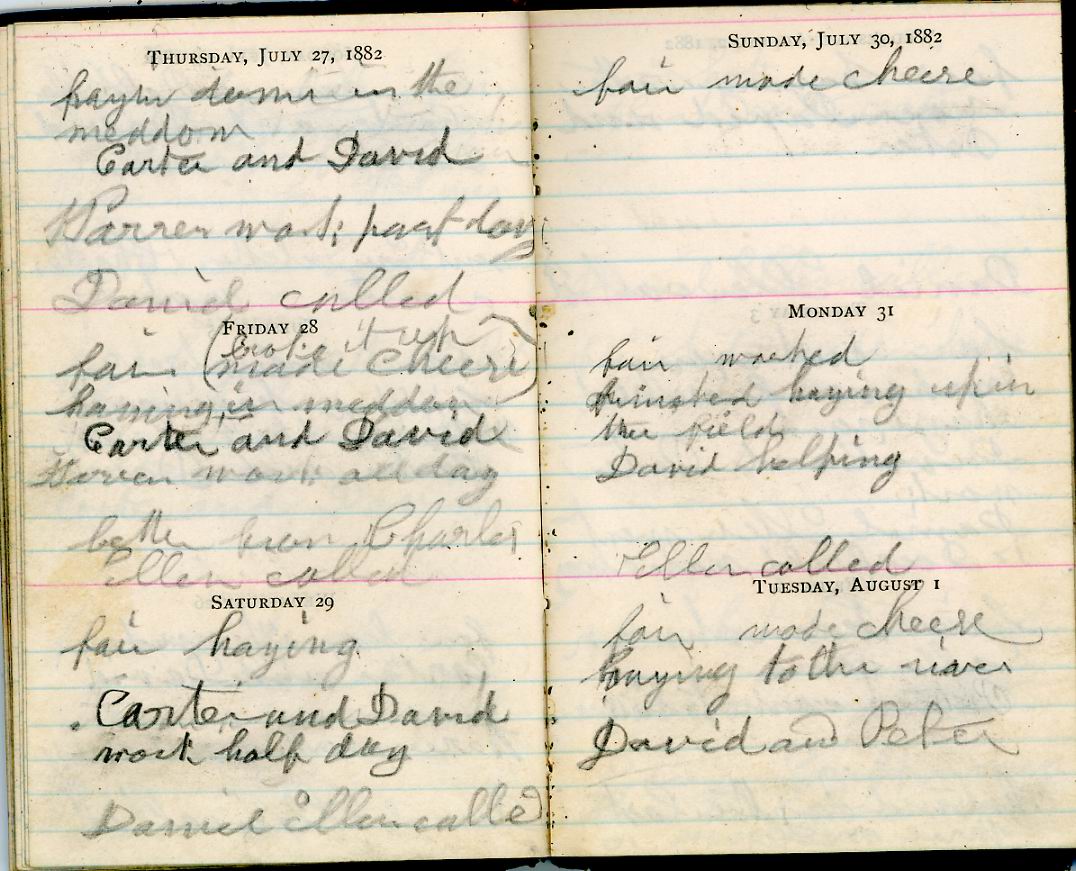 THURSDAY, JULY 27, 1882
in the
meddow
Carter and David
Warren work part day
Daniel called
FRIDAY 28
it up
fair (made Cheese)
haying in meddow
Carter and David
Warren work all day
better Charles
Ellen called
SATURDAY 29
fair haying
Carter and David
work half day
Daniel Ellen called
SUNDAY, JULY 30, 1882
fair made cheese
MONDAY 31
fair worked
finisted haying up in
the field
David helping
Ellen called
TUESDAY, AUGUST 1
fair made cheese
haying to the river
David and Peter